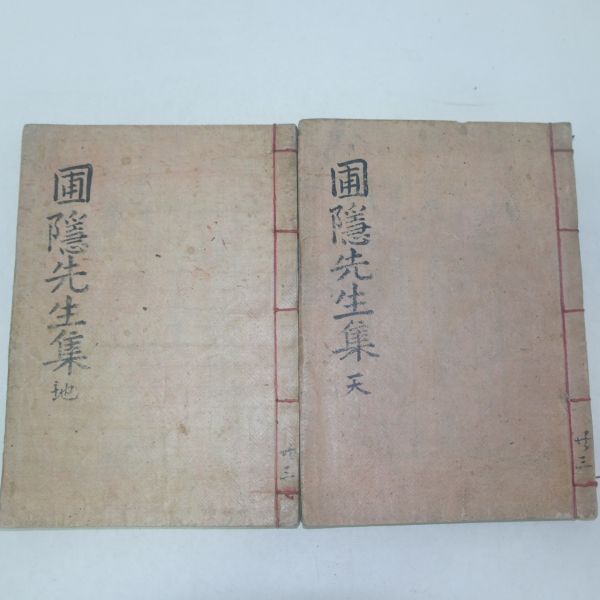 圃隱先生集
地
共三
圃隱先生集
天
共三